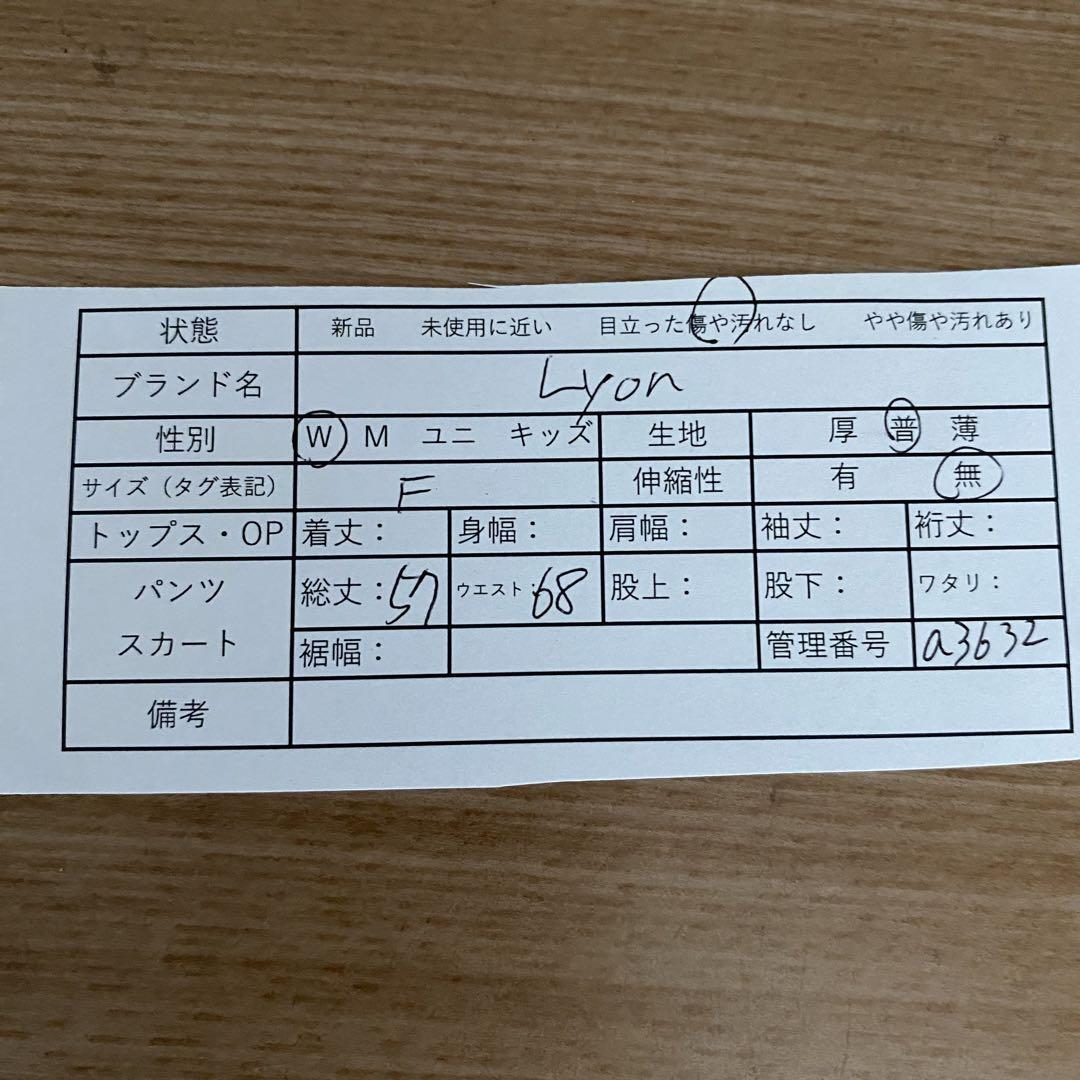 状態 新品 未使用に近い 目立った傷や汚れなし やや傷や汚れあり
ブランド名 Lyon
性別 W M ユニ キッズ 生地 厚 普 薄
サイズ（タグ表記） F 伸縮性 有 無
トップス・OP 着丈： 身幅： 肩幅： 袖丈： 裄丈：
パンツ 総丈：57 ウエスト：68 股上： 股下： ワタリ：
スカート 裾幅： 管理番号 a3632
備考